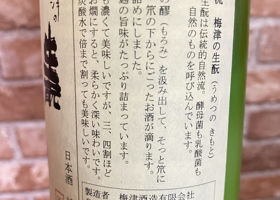 梅津の生酛（うめつの きもと）
生酛は伝統的自然流。酵母菌も乳酸菌も
自然のものを呼び込んでいます。
醪（もろみ）を汲み出して、そっと笊に
笊の下からにごったお酒が滴ります。
詰めにしました。
の旨味がたっぷり詰まっています。
濃くて美味しいですが、三、四割ほど
お燗にすると、柔らかく深い味わいです。
炭酸水で倍まで割っても美味しいです。
日本酒
製造者 梅津酒造有限会社